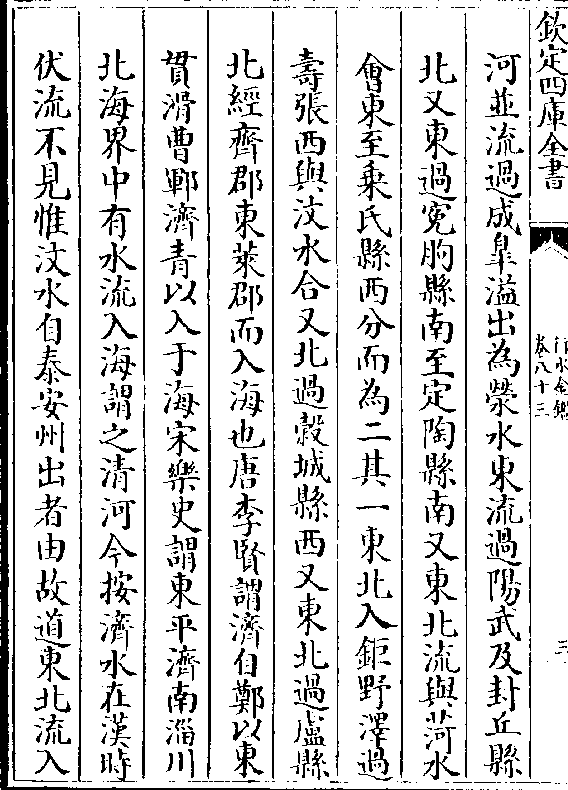 欽定四庫全書
行水金鑑
卷八十三
三
河並流過成皋溢出為滎水東流過陽武及封丘縣
北又東過寃朐縣南至定陶縣南又東北流與菏水
會東至乗氏縣西分而為二其一東北入鉅野澤過
壽張西與汶水合又北過穀城縣西又東北過盧縣
北經齊郡東萊郡而入海也唐李賢謂濟自鄭以東
貫滑曹鄆濟青以入于海宋樂史謂東平濟南淄川
北海界中有水流入海謂之清河今按濟水在漢時
伏流不見惟汶水自泰安州出者由故道東北流入